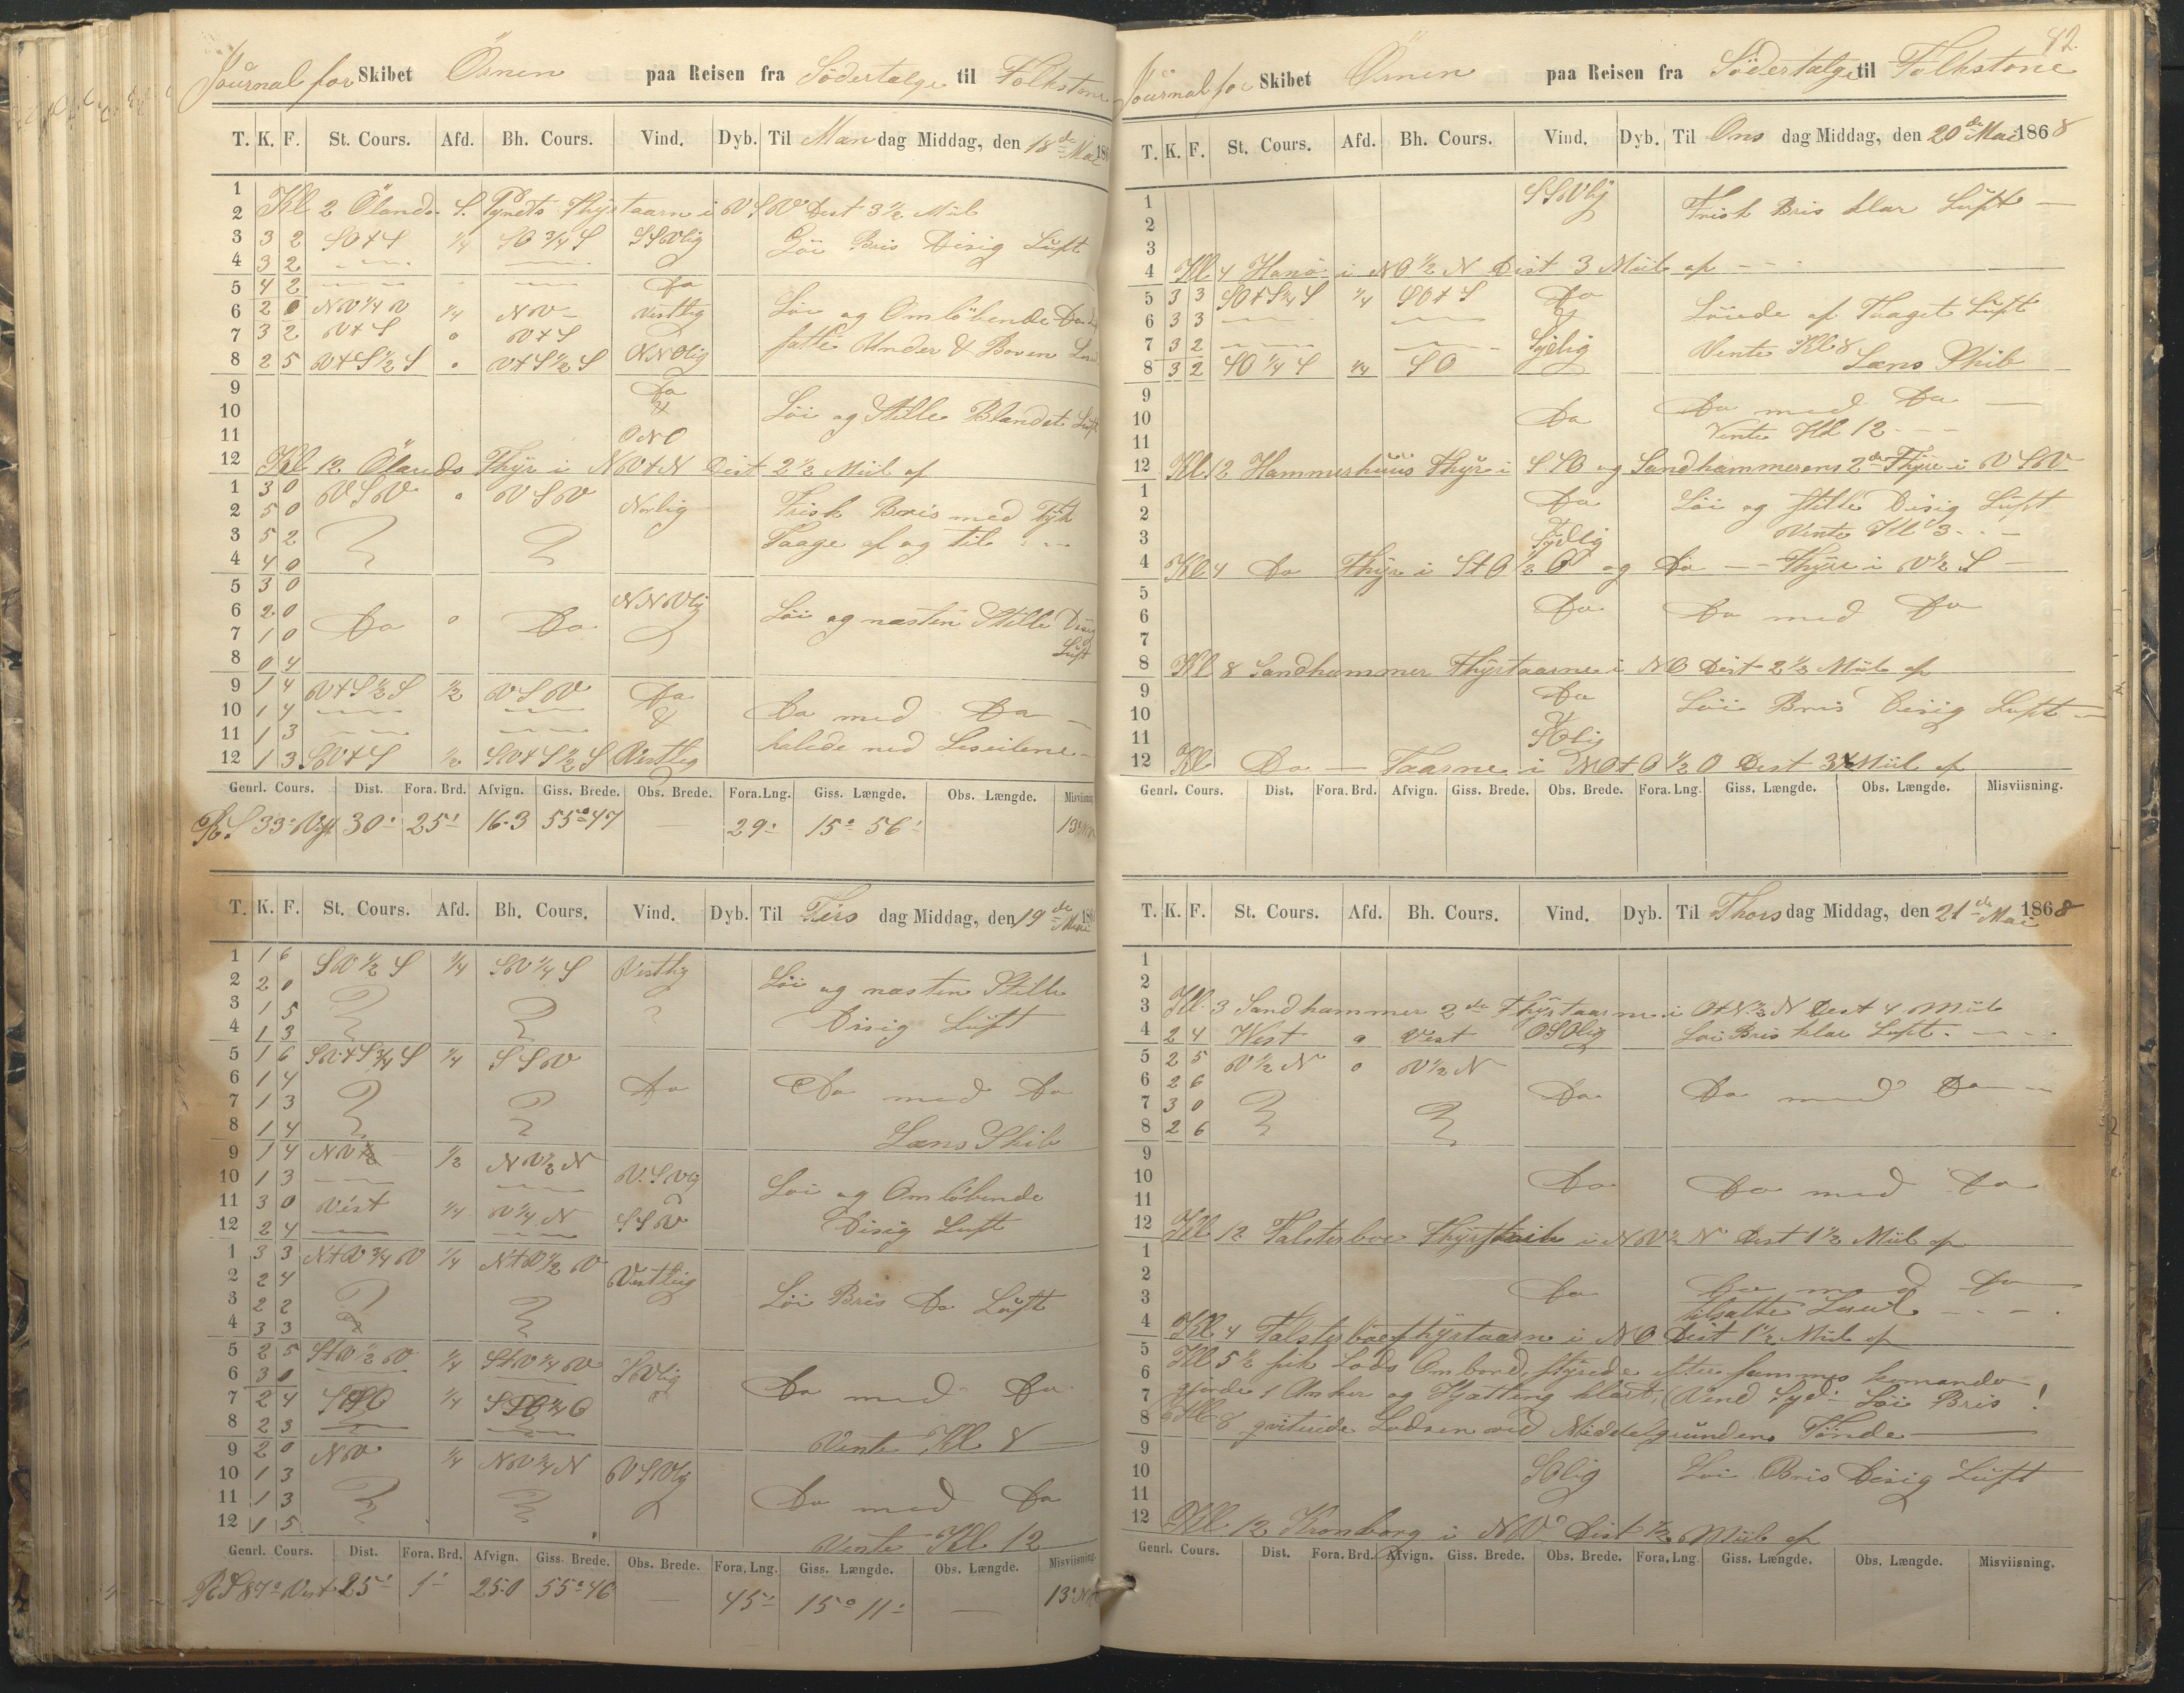 Journal for Skibet Ösnen paa Reisen fra Södertelge til Folkstone
T. K. F. St. Cours. Afd. Bh. Cours. Vind. Dyb. Til Man dag Middag, den 18 de Mai 186
1
2 Kl 2 Ölands S. Pynts Fhyrtaarn i VSV Dist 3 1/2 Miil
3 3 2 SO + S 1/4 SO 3/4 S SSVlig Löi Bris Disig Luft
4 3 2
5 4 2 Do
6 2 0 NV 1/4 V 1/4 NV Vestlig Löi og Omlöbende Do
7 3 2 V+S 0 V+S
8 2 5 V+S 1/2 S 0 V+S 1/2 S NNOlig satte Under & Boven
9 Do
10 & Löi og Stille Blandet Luft
11 ONO
12 Kl 12 Ölands Fhyr i NV+N Dist 2 1/2 Miil af
1 3 0 VSV 0 VSV
2 5 0 Norlig Frisk Bris med Tyk
3 5 2 Taage af og til
4 4 0
5 3 0 NNVlig
6 2 0 Do 0 Do Löi og næsten Stille Disig
7 1 0 Luft
8 0 4
9 1 4 V+S 1/2 S 1/2 VSV Do
10 1 4 & Do med Do
11 1 3 halede ned Leseilene
12 1 3 SV+S 1/2 SV+S 1/2 S Vestlig
Genrl. Cours. Dist. Fora. Brd. Afvign. Giss. Brede. Obs. Brede. Fora. Lng. Giss. Længde. Obs. Længde. Misviisning
R. S 33° Vest 30' 25' 16.3 55° 47 29' 15° 56' 13°
T. K. F. St. Cours. Afd. Bh. Cours. Vind. Dyb. Til Tirs dag Middag, den 19 de Mai 186
1 1 6 SV 1/2 S 1/4 SV 1/4 S Vestlig
2 2 0 Löi og næsten Stille
3 1 5 Disig Luft
4 1 3
5 1 6 SV+S 3/4 S 1/4 SSV
6 1 4 Do Do med Do
7 1 3
8 1 4 Læns Skib
9 1 4 NV 1/2 1/2 NV 1/2 N
10 1 3 V.SVlig Löi og Omlöbende
11 3 0 Vest 1/4 V 1/4 N Disig Luft
12 2 4 SSV
1 3 3 N+V 3/4 V 1/4 N+V 1/2 V
2 2 4 Vestlig Löi Bris Do Luft
3 2 2
4 3 3
5 2 5 S+V 1/2 V 1/4 S+V 1/4 V SVlig
6 3 0 Do med Do
7 2 4 1/4
8 2 3 Vente Kl 8
9 2 0 NV 1/4 NV 1/4 N VSVlig
10 1 3 Do med Do
11 1 3
12 1 5 Vente Kl 12
Genrl. Cours. Dist. Fora. Brd. Afvign. Giss. Brede. Obs. Brede. Fora. Lng. Giss. Længde. Obs. Længde. Misviisning.
R S 87° Vest 25' 1' 25.0 55° 46 45' 15° 11' 13°
42.
Journal for Skibet Ösnen paa Reisen fra Södertalge til Folkstone
T. K. F. St. Cours. Afd. Bh. Cours. Vind. Dyb. Til Ons dag Middag, den 20 de Mai 1868
1 SSVlig Frisk Bris klar Luft
2
3
4 Kl 4 Hanö i NO 1/2 N Dist 3 Miil af
5 3 3 SO+S 1/4 S 1/4 SO+S Do
6 3 3 & Löiede af Taaget Luft
7 3 2 Sydlig Vente Kl 8
8 3 2 SO 1/4 S 1/4 SO Læns Skib
9
10 Do Do med Do
11 Vente Kl 12
12 Kl 12 Hammerhuus Fhyr i SSO og Sandhammerens 2 de Fhyre i VSV
1 Do Löi og stille Disig Luft
2
3 Sydlig Vente Kl 3
4 Kl 4 Do Fhyr i S+O 1/2 O og Do Fhyre i V 1/2 S
5
6 Do Do med Do
7
8 Kl 8 Sandhammer Fhyrtaarne i NO Dist 2 1/2 Miil af
9 Do Löi Bris Disig Luft
10 &
11 SOlig
12 Kl Do Taarne i NO+O 1/2 O Dist 3 Miil af
Genrl. Cours. Dist. Fora. Brd. Afvign. Giss. Brede. Obs. Brede. Fora. Lng. Giss. Længde. Obs. Længde. Misviisning.
T. K. F. St. Cours. Afd. Bh. Cours. Vind. Dyb. Til Thors dag Middag, den 21 de Mai 1868
1
2
3 Kl. 3 Sandhammer 2 de Fhyrtaarne i O+N 1/2 N Dist 4 Miil
4 2 4 West 0 Vest OSOlig Löi Bris klar Luft
5 2 5 V 1/2 N 0 V 1/2 N
6 2 6 Do Do med Do
7 3 0
8 2 6
9
10 Do Do med Do
11
12 Kl 12 Falsterboe Fhyrskib i NV 1/2 N Dist 1 1/2 Miil af
1
2 Do Do med Do
3 tilsatte Leseil
4 Kl 4 Falsterboe Fhyrtaarn i NO Dist 1 1/2 Miil af
5 Kl 5 1/2 fik Lods Ombord, styrede efter sammes komando
6
7 gjorde 1 Anker og Kjætting klart, Vind Syd Löi Bris!
8 Kl 8 qviterede Lodsen ved Middelgrundens Tönde
9
10 SOlig Löi Bris Disig Luft
11
12 Kl 12 Kronborg i NV Dist 1/2 Miil af
Genrl. Cours. Dist. Fora. Brd. Afvign. Giss. Brede. Obs. Brede. Fora. Lng. Giss. Længde. Obs. Længde. Misviisning.